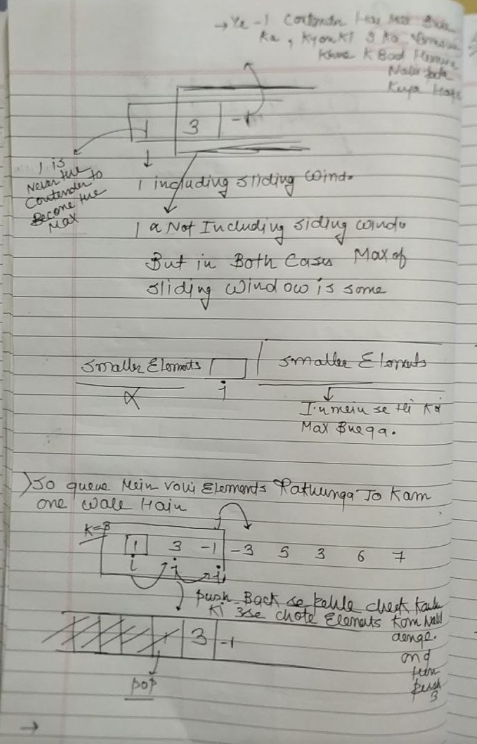 → Ye -1 Contender Hai Max
Ka, Kyonki 3 Ko Remove
Karne K Baad Humein
Nahi pata
Kuya Hoga
1 3 -1
1 is
Never the
Contender to
Become the
Max
1 including sliding Windo
1 a Not Including sliding windo
But in Both Cases Max of
sliding Window is same
Smaller Elements smaller Elements
i
Inmein se Hi Koi
Max Bnega.
So queue Mein vohi Elements Rakhunga Jo Kam
one wale Hain
K=3
1 3 -1 -3 5 3 6 7
i j j
push Back se pehle check
Ki 3 se chote Elements Kam Nahi
aenge.
and
then
push
3
3 -1
pop
→